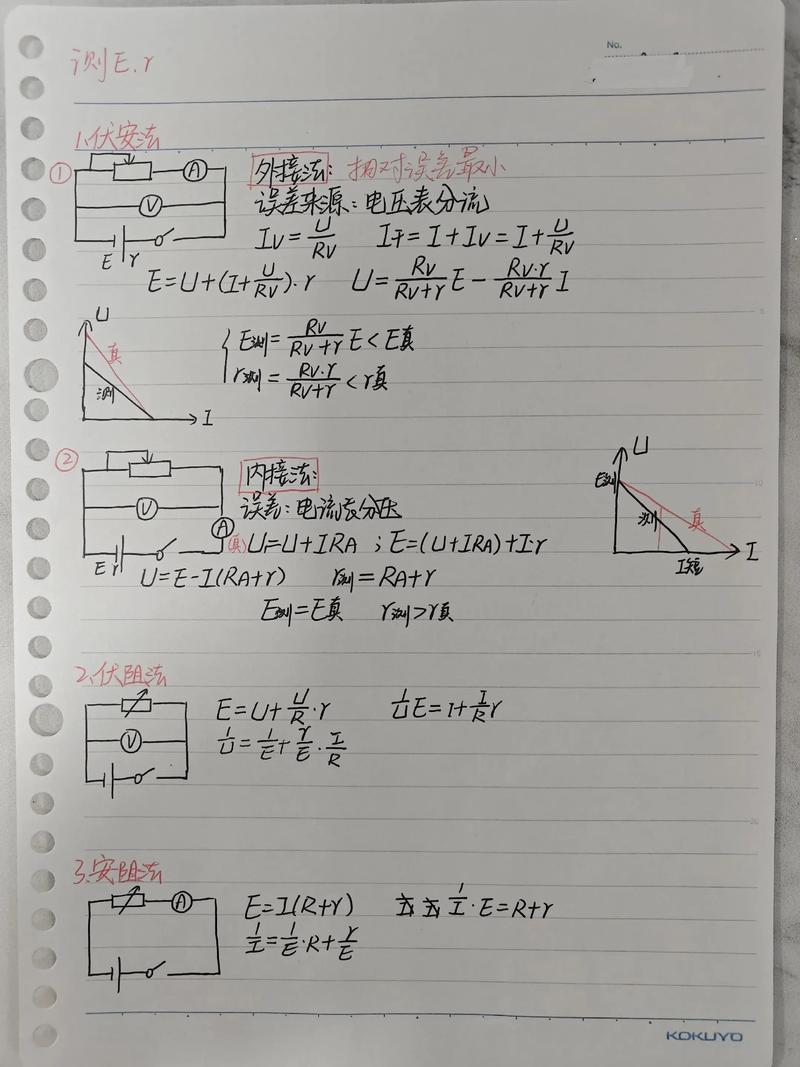 No.
测E.r
1.伏安法
① A V E r
外接法: 相对误差最小
误差来源:电压表分流
Iv=U/Rv I干=I+Iv=I+U/Rv
E=U+(I+U/Rv)·r U=Rv/(Rv+r)E-Rv·r/(Rv+r)I
U 真 测 I
E测=Rv/(Rv+r)E<E真
r测=Rv·r/(Rv+r)<r真
② V A E r
内接法:
误差:电流表分压
(真)U=U+IRA ;E=(U+IRA)+I·r
U=E-I(RA+r) r测=RA+r
E测=E真 r测>r真
U E测 测 真 I短 I
2.伏阻法
V
E=U+U/R·r 1/U E=1+I/R r
1/U=1/E+r/E·I/R
3.安阻法
A
E=I(R+r) 1/I·E=R+r
1/I=1/E·R+r/E
KOKUYO